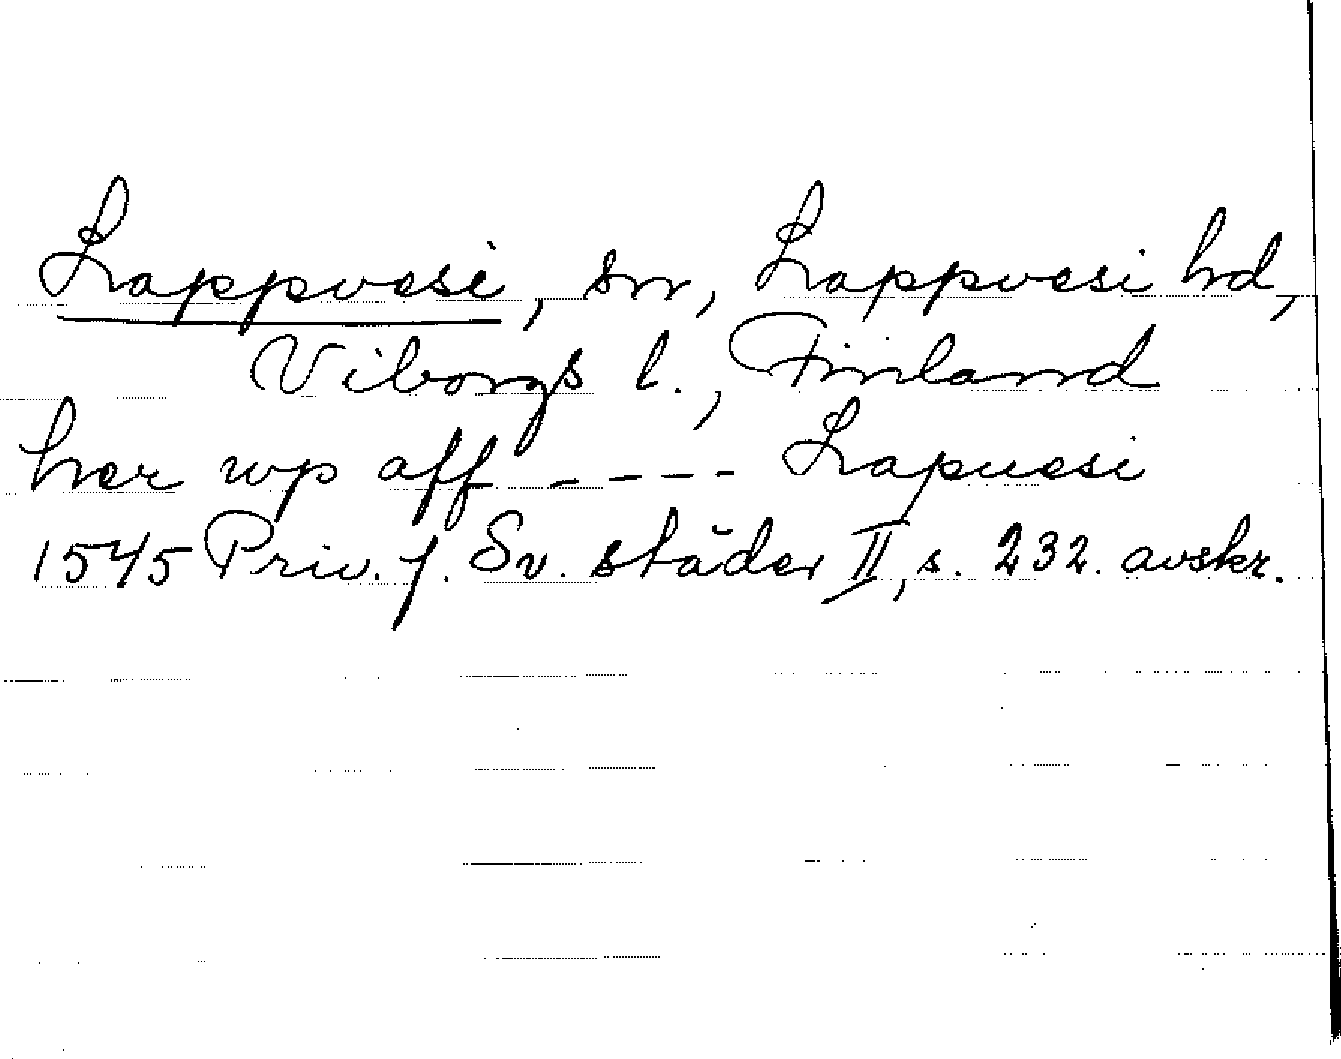 Lappvesi, sn, Lappvesi hd,
Viborgs l., Finland
her wp aff ---- Lapuesi
1545 Priv. f. Sv. städer II, s. 232. avskr.